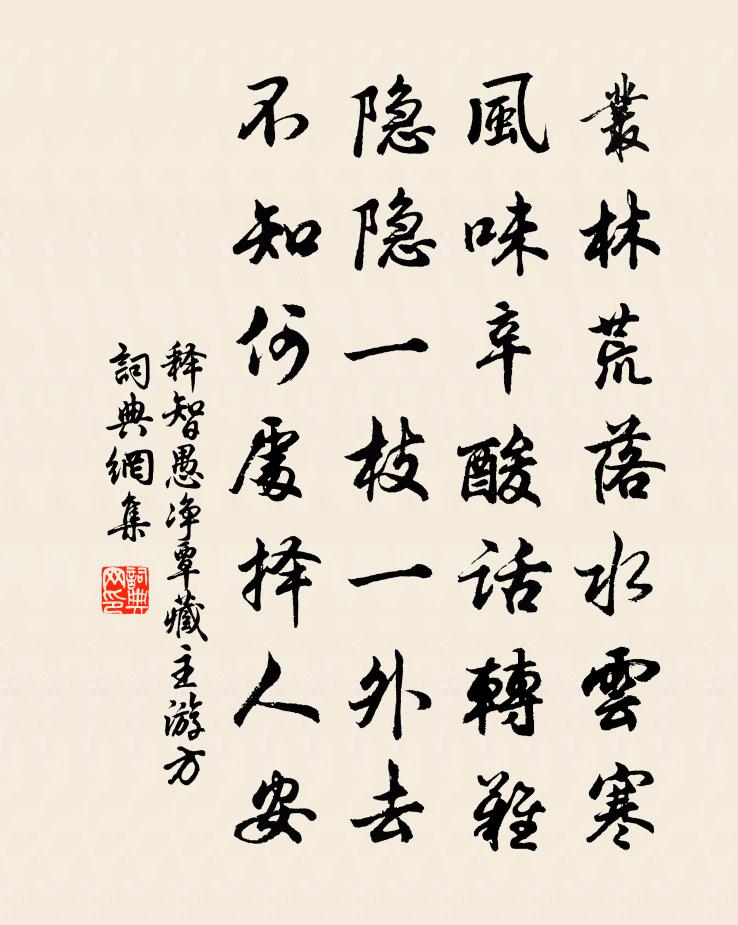 叢林荒落水雲寒
風味辛酸話轉難
隐隐一枝一外去
不知何處择人安
释智愚净覃藏主游方
詞典網集
詞典網印